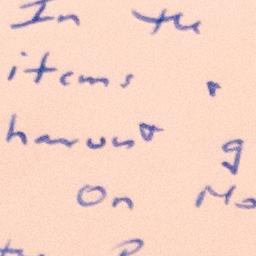 In the
items
harvest g
On Mo